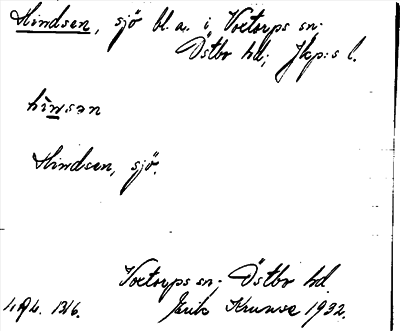 Hindsen, sjö bl.a. i Voxtorps sn;
Östbo hd; Jkp:s l.
hinsən
Hindsen, sjö.
Voxtorps sn; Östbo hd.
Erik 1932.